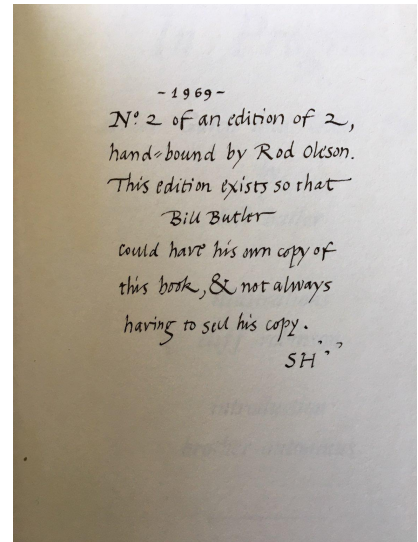 -1969-
Nº 2 of an edition of 2,
hand-bound by Rod Oleson.
This edition exists so that
Bill Butler
could have his own copy of
this book, & not always
having to sell his copy.
SH